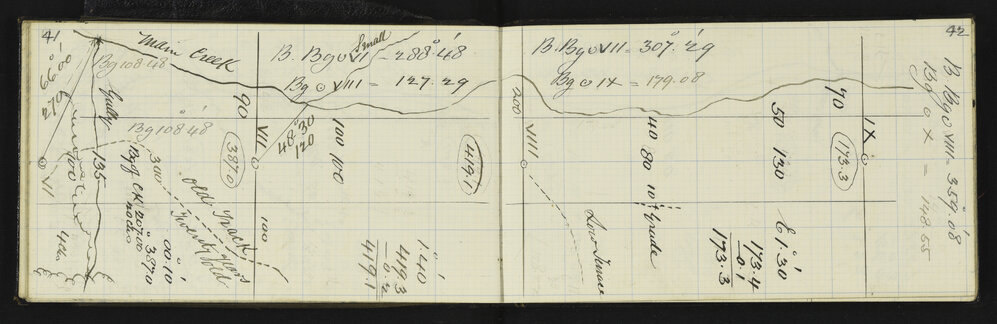 41
Main Creek
Small
B. Bg ⊙ VI - 288° 48'
Bg ⊙ VIII = 127. 29
66° 00'
270
Bg 108 48
Gully
Bg 108° 48'
90
VII
387.0
48° 30'
120
100 100
419.1
VI
100
135
300
old Track
Twenty Years old
100
0° 10'
387.0
1° 40'
419.3
0.2
419.1
42
B. Bg ⊙ VII = 307° 29'
Bg ⊙ IX = 179.08
200
VIIII
40 80 10
Grade
50 130
70
IX
173.3
E 1° 30'
173.4
0.1
173.3
B Bg ⊙ VIII = 359° 08'
Bg ⊙ X =